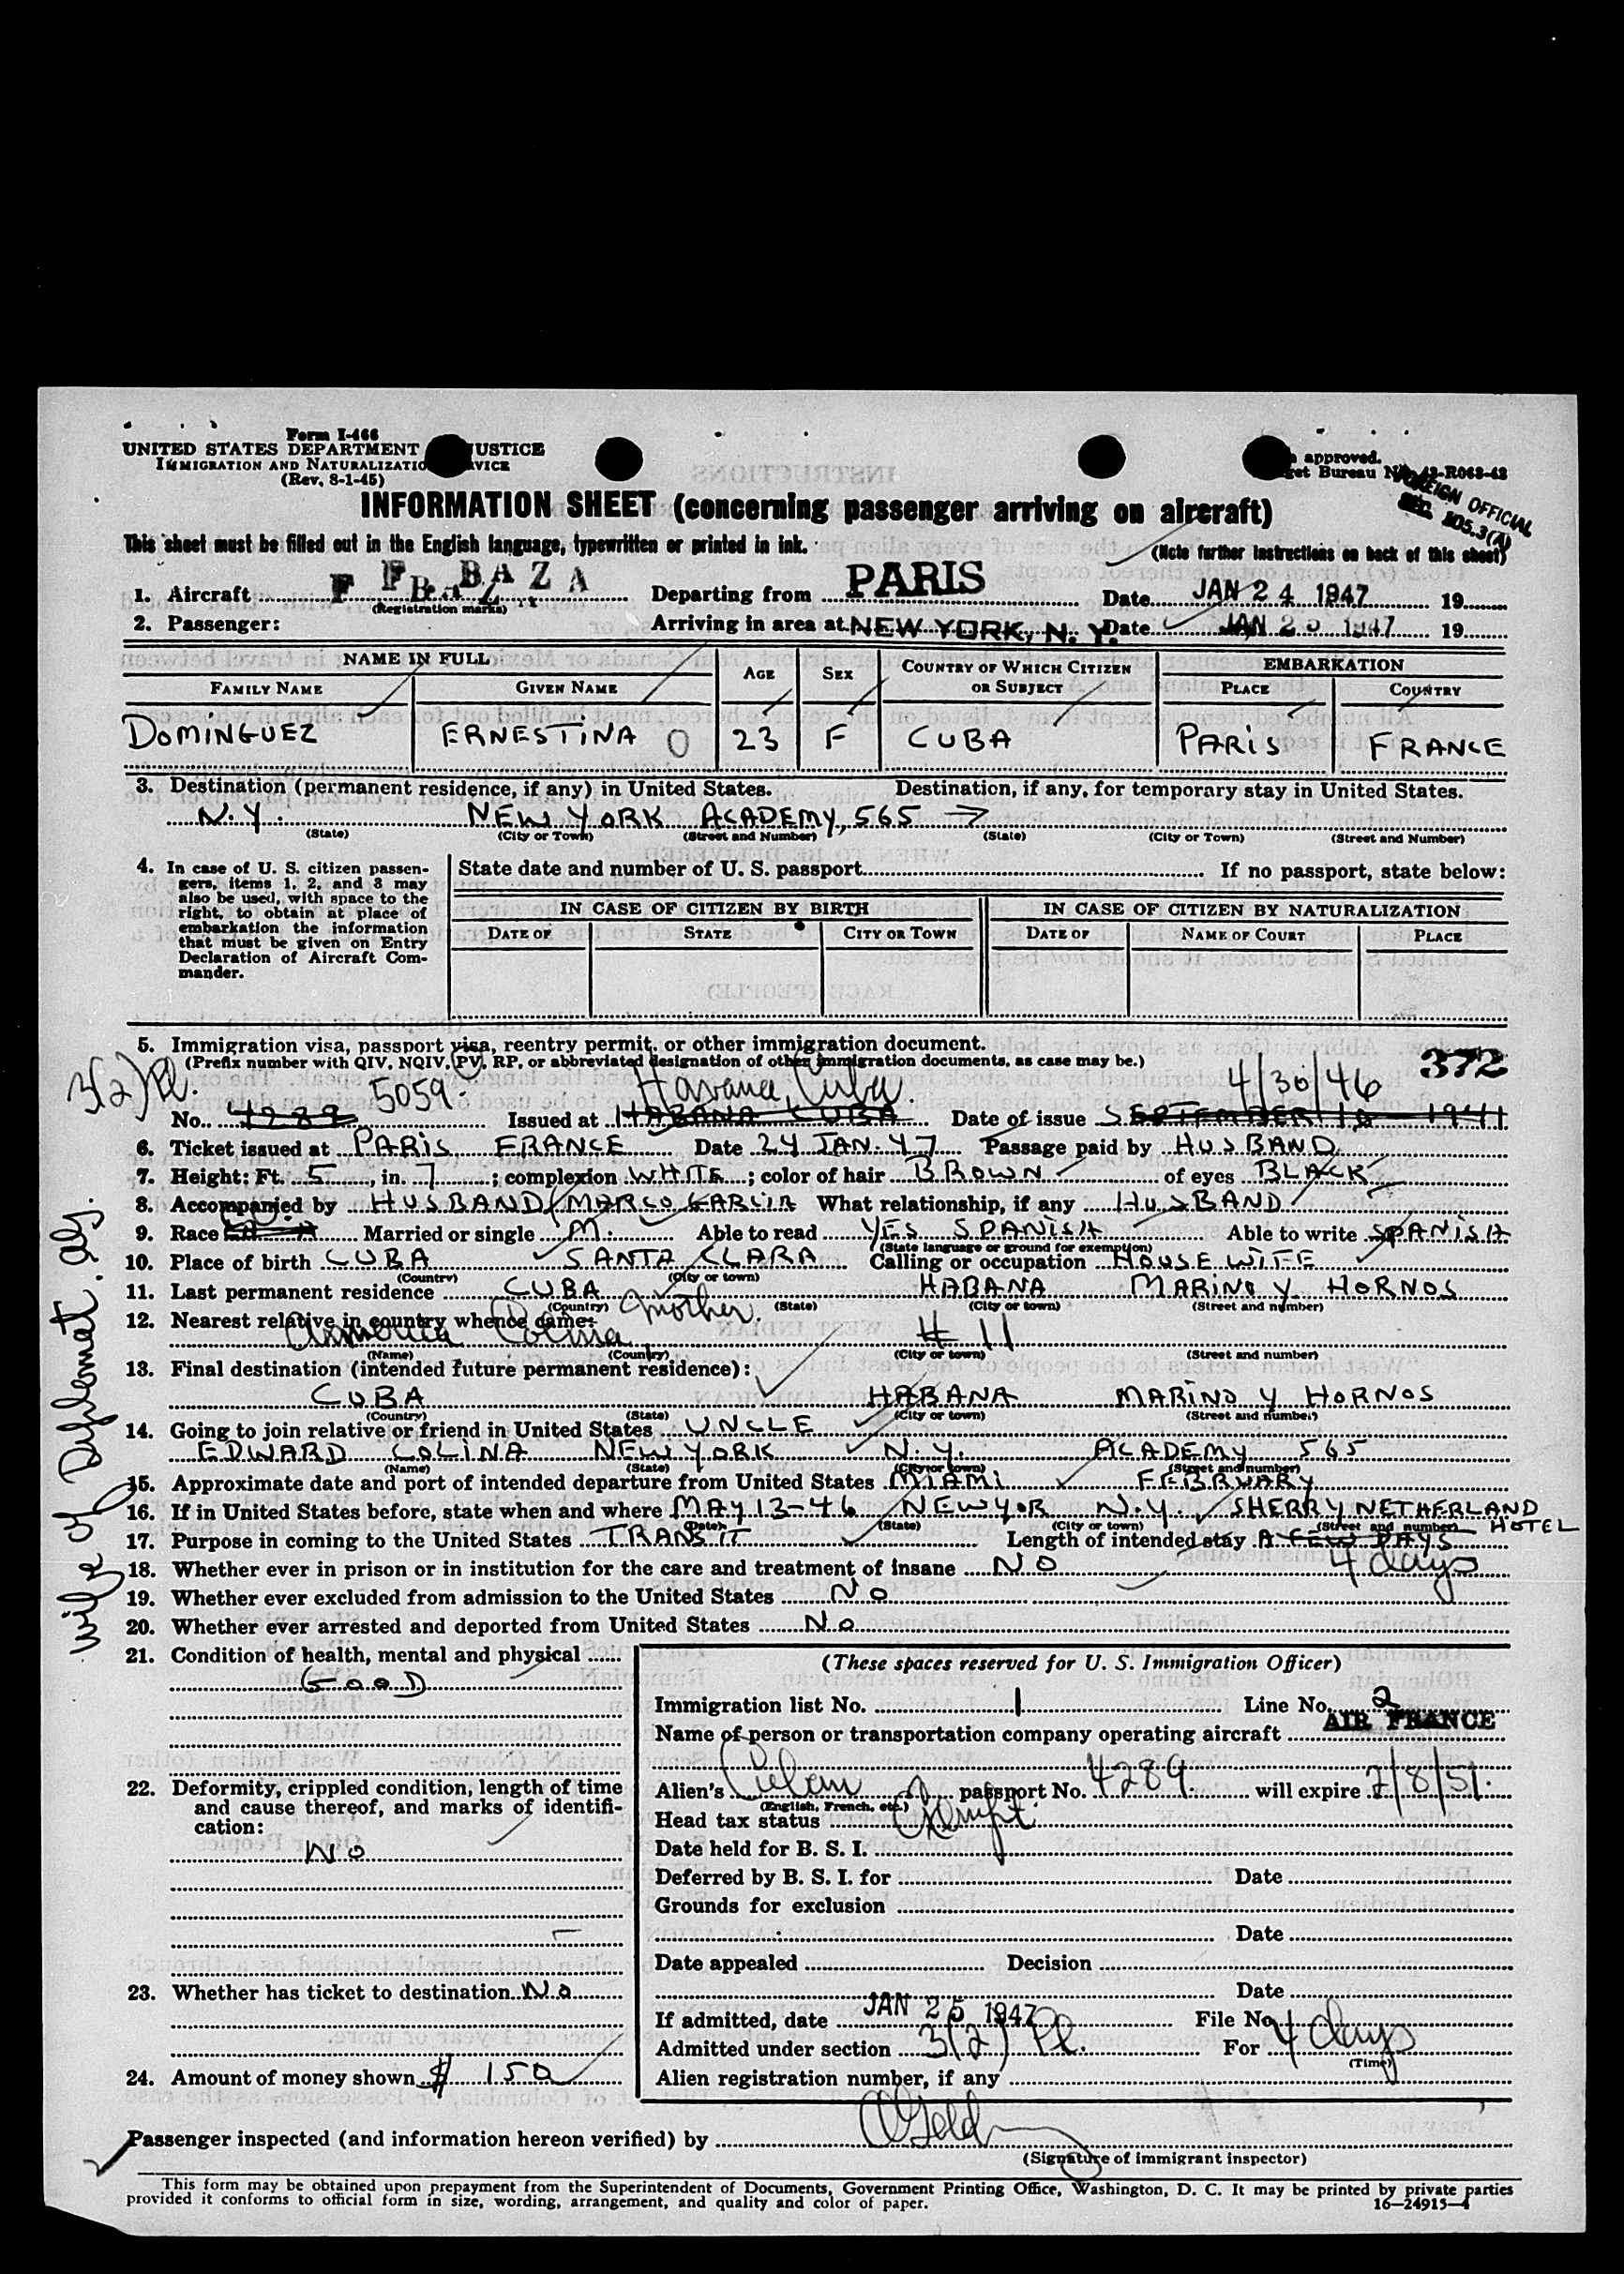 Form I-466
UNITED STATES DEPARTMENT JUSTICE
IMMIGRATION AND NATURALIZATIO VICE
(Rev. 8-1-45)
approved.
get Bureau No. 43-R063-42
FOREIGN OFFICIAL
SEC. 105.3(A)
INFORMATION SHEET (concerning passenger arriving on aircraft)
This sheet must be filled out in the English language, typewritten or printed in ink.
(Note further instructions on back of this sheet)
1. Aircraft F BAZA Departing from PARIS Date JAN 24 1947 19
(Registration marks)
2. Passenger: Arriving in area at NEW YORK, N. Y. Date JAN 25 1947 19
NAME IN FULL AGE SEX COUNTRY OF WHICH CITIZEN OR SUBJECT EMBARKATION
FAMILY NAME GIVEN NAME PLACE COUNTRY
DOMINGUEZ ERNESTINA O 23 F CUBA PARIS FRANCE
3. Destination (permanent residence, if any) in United States. Destination, if any, for temporary stay in United States.
N.Y. NEW YORK ACADEMY, 565 →
(State) (City or Town) (Street and Number) (State) (City or Town) (Street and Number)
4. In case of U. S. citizen passengers, items 1, 2, and 3 may also be used, with space to the right, to obtain at place of embarkation the information that must be given on Entry Declaration of Aircraft Commander.
State date and number of U. S. passport If no passport, state below:
IN CASE OF CITIZEN BY BIRTH IN CASE OF CITIZEN BY NATURALIZATION
DATE OF STATE CITY OR TOWN DATE OF NAME OF COURT PLACE
5. Immigration visa, passport visa, reentry permit, or other immigration document.
(Prefix number with QIV, NQIV, PV, RP, or abbreviated designation of other immigration documents, as case may be.)
372
3(2) Pl. 5059. Havana, Cuba. 4/30/46
No. 4289 Issued at HABANA CUBA Date of issue SEPTEMBER 10 1941
6. Ticket issued at PARIS FRANCE Date 24 JAN. 47 Passage paid by HUSBAND
7. Height: Ft. 5, in. 7; complexion WHITE; color of hair BROWN of eyes BLACK
8. Accompanied by HUSBAND/MARCO GARCIA What relationship, if any HUSBAND
9. Race Married or single M. Able to read YES SPANISH Able to write SPANISH
(State language or ground for exemption)
10. Place of birth CUBA SANTA CLARA Calling or occupation HOUSE WIFE
(Country) (City or town)
11. Last permanent residence CUBA HABANA MARINO Y HORNOS
(Country) (State) (City or town) (Street and number)
12. Nearest relative in country whence came: mother.
Colina # 11
(Name) (Country) (City or town) (Street and number)
13. Final destination (intended future permanent residence):
CUBA HABANA MARINO Y HORNOS
(Country) (State) (City or town) (Street and number)
14. Going to join relative or friend in United States UNCLE
EDWARD COLINA NEW YORK N.Y. ACADEMY 565
(Name) (State) (City or town) (Street and number)
15. Approximate date and port of intended departure from United States MIAMI FEBRUARY
16. If in United States before, state when and where MAY 13-46 NEWYOR N.Y. SHERRY NETHERLAND HOTEL
(Date) (State) (City or town) (Street and number)
17. Purpose in coming to the United States TRANSIT Length of intended stay A FEW DAYS
4 days
18. Whether ever in prison or in institution for the care and treatment of insane NO
19. Whether ever excluded from admission to the United States NO
20. Whether ever arrested and deported from United States NO
wife of Diplomat.
21. Condition of health, mental and physical
GOOD
22. Deformity, crippled condition, length of time and cause thereof, and marks of identification:
NO
23. Whether has ticket to destination NO
24. Amount of money shown $ 150
(These spaces reserved for U. S. Immigration Officer)
Immigration list No. 1 Line No. 2
Name of person or transportation company operating aircraft AIR FRANCE
Alien's Cuban passport No. 4289. will expire 2/8/51.
(English, French, etc.)
Head tax status Exempt.
Date held for B. S. I.
Deferred by B. S. I. for Date
Grounds for exclusion
Date
Date appealed Decision
Date
If admitted, date JAN 25 1947 File No.
Admitted under section 3(2) Pl. For 4 days
(Time)
Alien registration number, if any
Passenger inspected (and information hereon verified) by
(Signature of immigrant inspector)
This form may be obtained upon prepayment from the Superintendent of Documents, Government Printing Office, Washington, D. C. It may be printed by private parties
provided it conforms to official form in size, wording, arrangement, and quality and color of paper. 16—24915-1